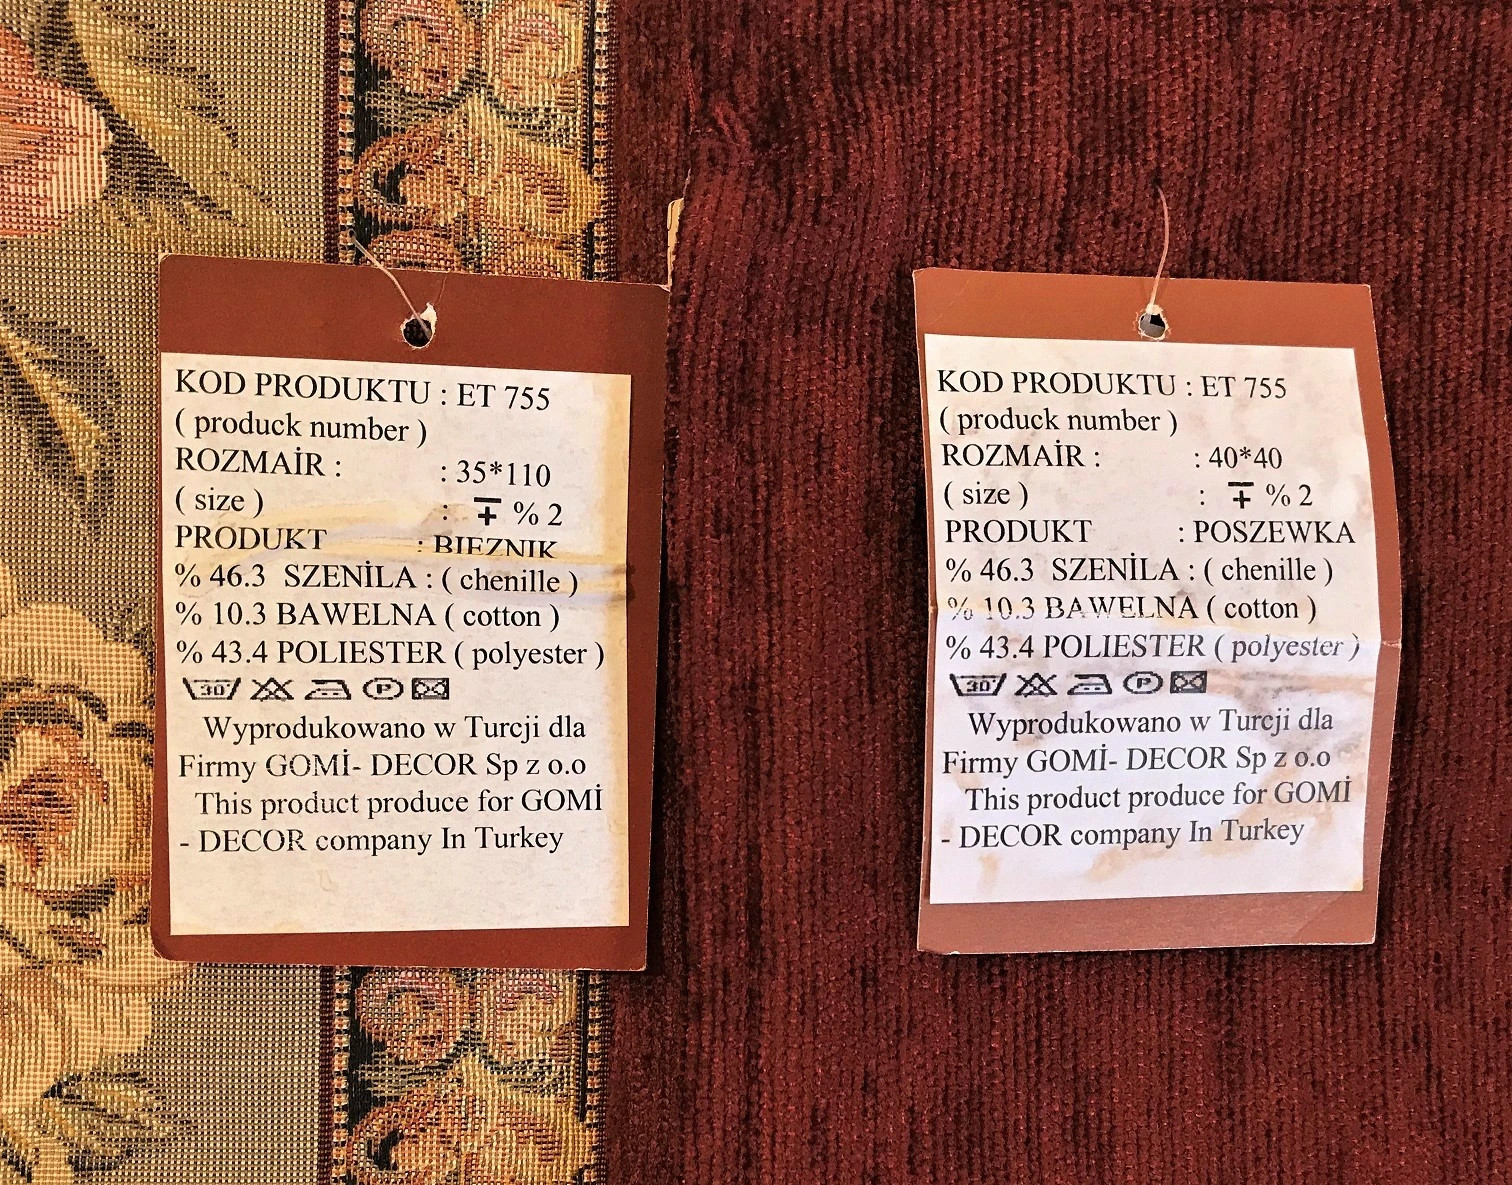 KOD PRODUKTU : ET 755
( produck number )
ROZMAİR : : 35*110
( size ) : ∓ % 2
PRODUKT : BIEZNIK
% 46.3 SZENİLA : ( chenille )
% 10.3 BAWELNA ( cotton )
% 43.4 POLIESTER ( polyester )
30 P
Wyprodukowano w Turcji dla
Firmy GOMİ- DECOR Sp z o.o
This product produce for GOMİ
- DECOR company In Turkey
KOD PRODUKTU : ET 755
( produck number )
ROZMAİR : : 40*40
( size ) : ∓ % 2
PRODUKT : POSZEWKA
% 46.3 SZENİLA : ( chenille )
% 10.3 BAWELNA ( cotton )
% 43.4 POLIESTER ( polyester )
30 P
Wyprodukowano w Turcji dla
Firmy GOMİ- DECOR Sp z o.o
This product produce for GOMİ
- DECOR company In Turkey